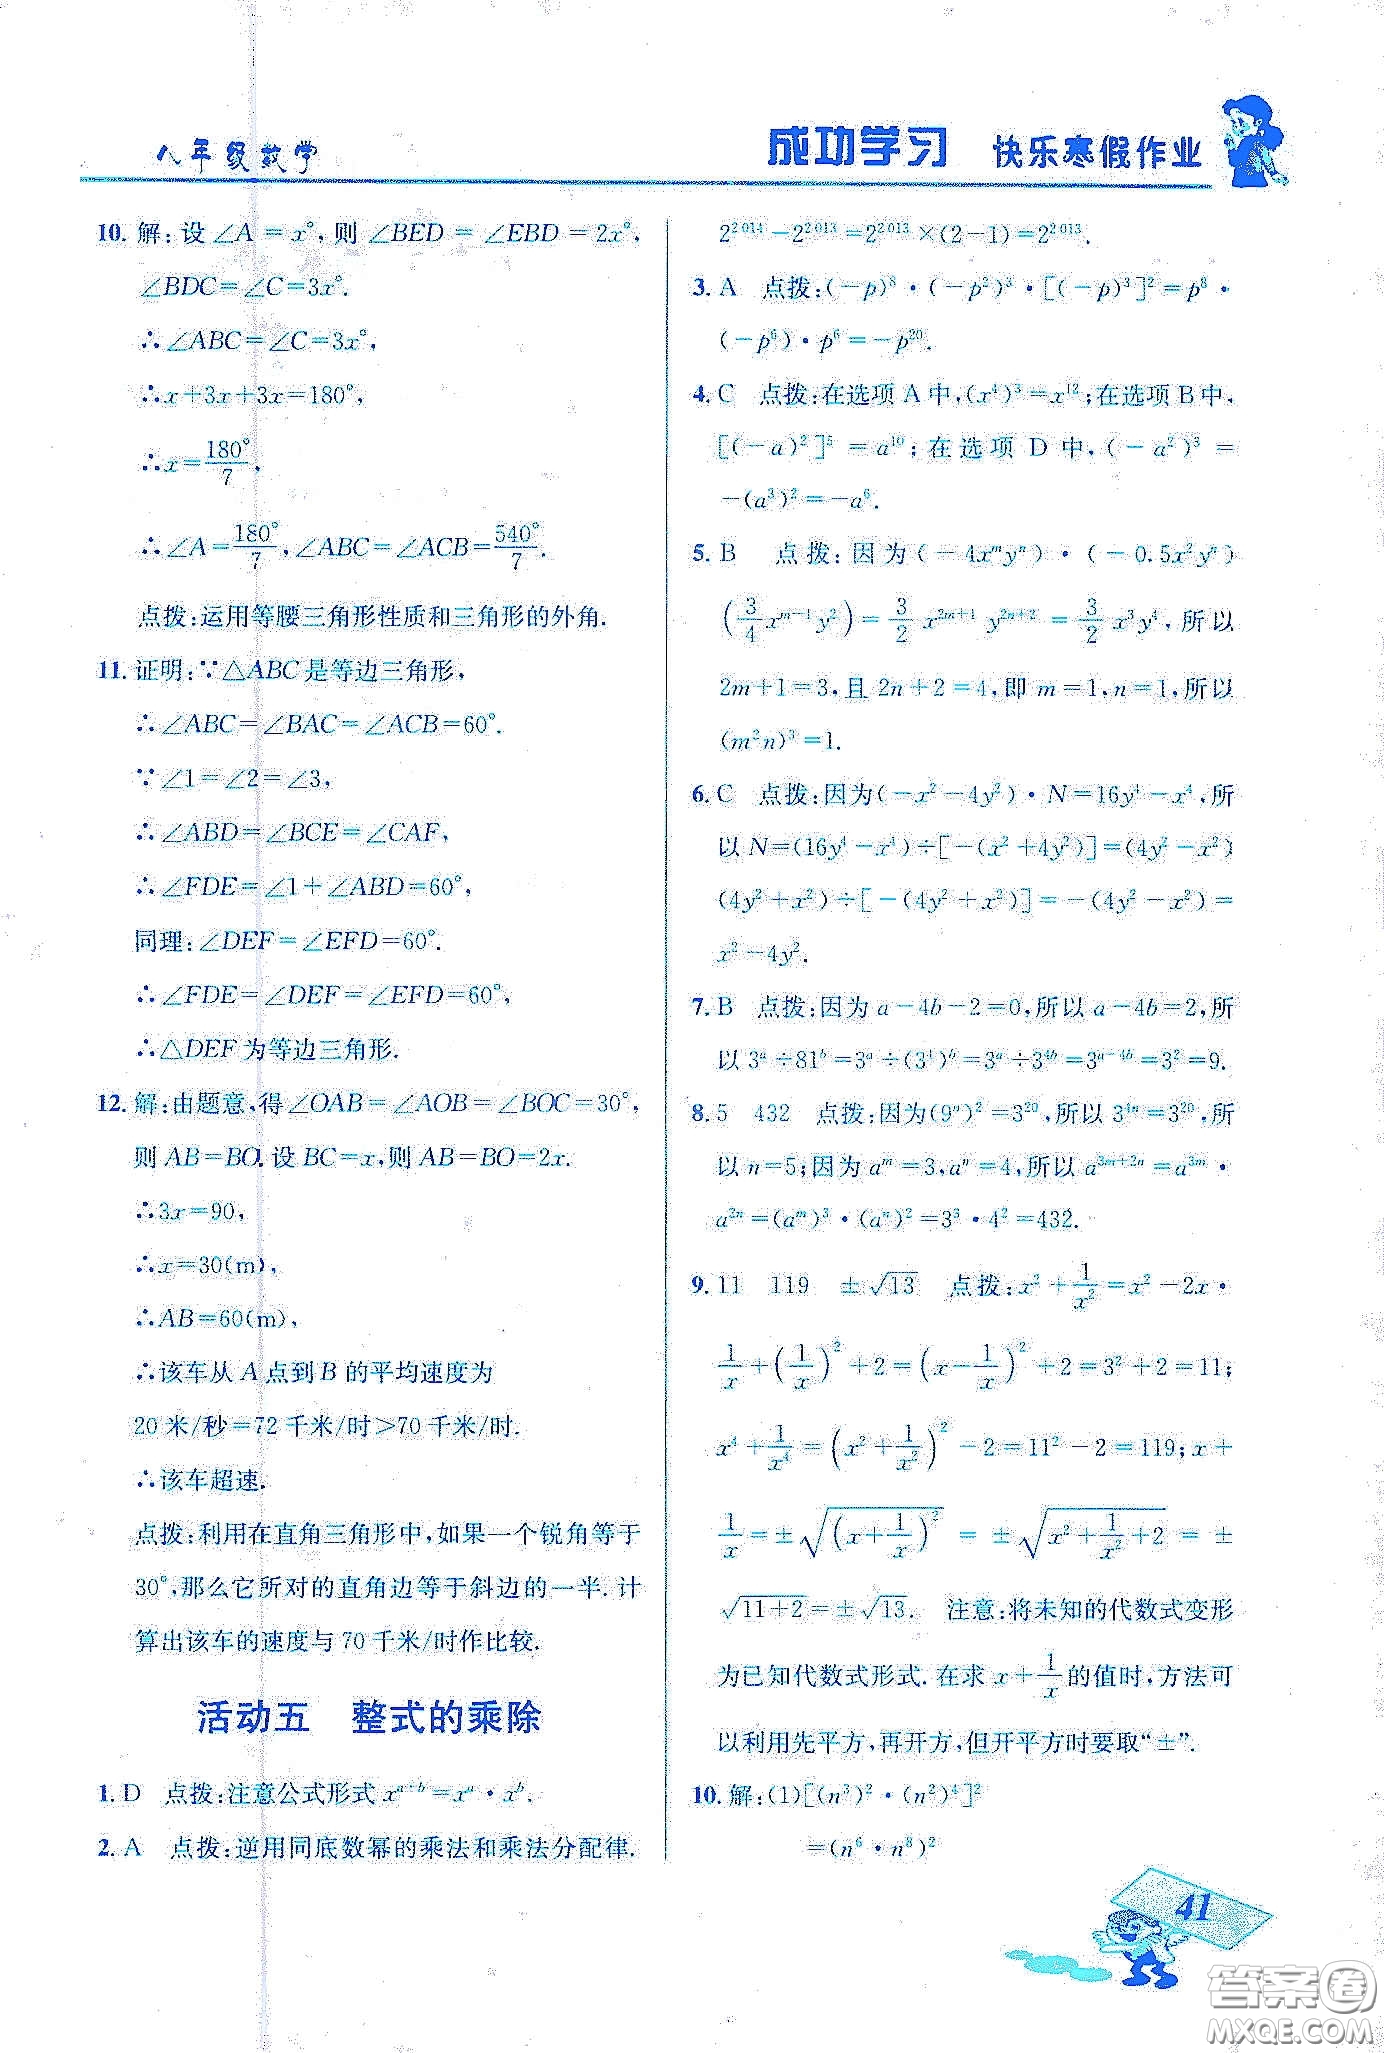 八年级数学
成功学习 快乐寒假作业
10. 解:设∠A=x°,则∠BED=∠EBD=2x°,
∠BDC=∠C=3x°.
∴∠ABC=∠C=3x°,
∴x+3x+3x=180°,
∴x=180°/7,
∴∠A=180°/7,∠ABC=∠ACB=540°/7.
点拨:运用等腰三角形性质和三角形的外角.
11. 证明:∵△ABC是等边三角形,
∴∠ABC=∠BAC=∠ACB=60°.
∵∠1=∠2=∠3,
∴∠ABD=∠BCE=∠CAF,
∴∠FDE=∠1+∠ABD=60°,
同理:∠DEF=∠EFD=60°.
∴∠FDE=∠DEF=∠EFD=60°,
∴△DEF为等边三角形.
12. 解:由题意,得∠OAB=∠AOB=∠BOC=30°,
则AB=BO.设BC=x,则AB=BO=2x.
∴3x=90,
∴x=30(m),
∴AB=60(m),
∴该车从A点到B的平均速度为
20米/秒=72千米/时>70千米/时.
∴该车超速.
点拨:利用在直角三角形中,如果一个锐角等于
30°,那么它所对的直角边等于斜边的一半.计
算出该车的速度与70千米/时作比较.
活动五 整式的乘除
1. D 点拨:注意公式形式x^{a+b}=x^a·x^b.
2. A 点拨:逆用同底数幂的乘法和乘法分配律.
2^{2014}-2^{2013}=2^{2013}×(2-1)=2^{2013}.
3. A 点拨:(-p)^8·(-p²)³·[(-p)³]²=p^8·
(-p^6)·p^6=-p^{20}.
4. C 点拨:在选项A中,(x⁴)³=x^{12};在选项B中,
[(-a)²]^5=a^{10};在选项D中,(-a²)³=
-(a³)²=-a^6.
5. B 点拨:因为(-4x^m y^n)·(-0.5x²y^n)
(3/4 x^{m-1}y²)=3/2 x^{2m+1} y^{2n+2}=3/2 x³y⁴,所以
2m+1=3,且2n+2=4,即m=1,n=1,所以
(m²n)³=1.
6. C 点拨:因为(-x²-4y²)·N=16y⁴-x⁴,所
以N=(16y⁴-x⁴)÷[-(x²+4y²)]=(4y²-x²)
(4y²+x²)÷[-(4y²+x²)]=-(4y²-x²)=
x²-4y².
7. B 点拨:因为a-4b-2=0,所以a-4b=2,所
以3^a÷81^b=3^a÷(3⁴)^b=3^a÷3^{4b}=3^{a-4b}=3²=9.
8. 5 432 点拨:因为(9^n)²=3^{20},所以3^{4n}=3^{20},所
以n=5;因为a^m=3,a^n=4,所以a^{3m+2n}=a^{3m}·
a^{2n}=(a^m)³·(a^n)²=3³·4²=432.
9. 11 119 ±√13 点拨:x²+1/x²=x²-2x·
1/x+(1/x)²+2=(x-1/x)²+2=3²+2=11;
x⁴+1/x⁴=(x²+1/x²)²-2=11²-2=119;x+
1/x=±√((x+1/x)²)=±√(x²+1/x²+2)=±
√(11+2)=±√13. 注意:将未知的代数式变形
为已知代数式形式.在求x+1/x的值时,方法可
以利用先平方,再开方,但开平方时要取“±”.
10. 解:(1)[(n³)²·(n²)⁴]²
=(n^6·n^8)²
41
答案卷
MXQE.COM